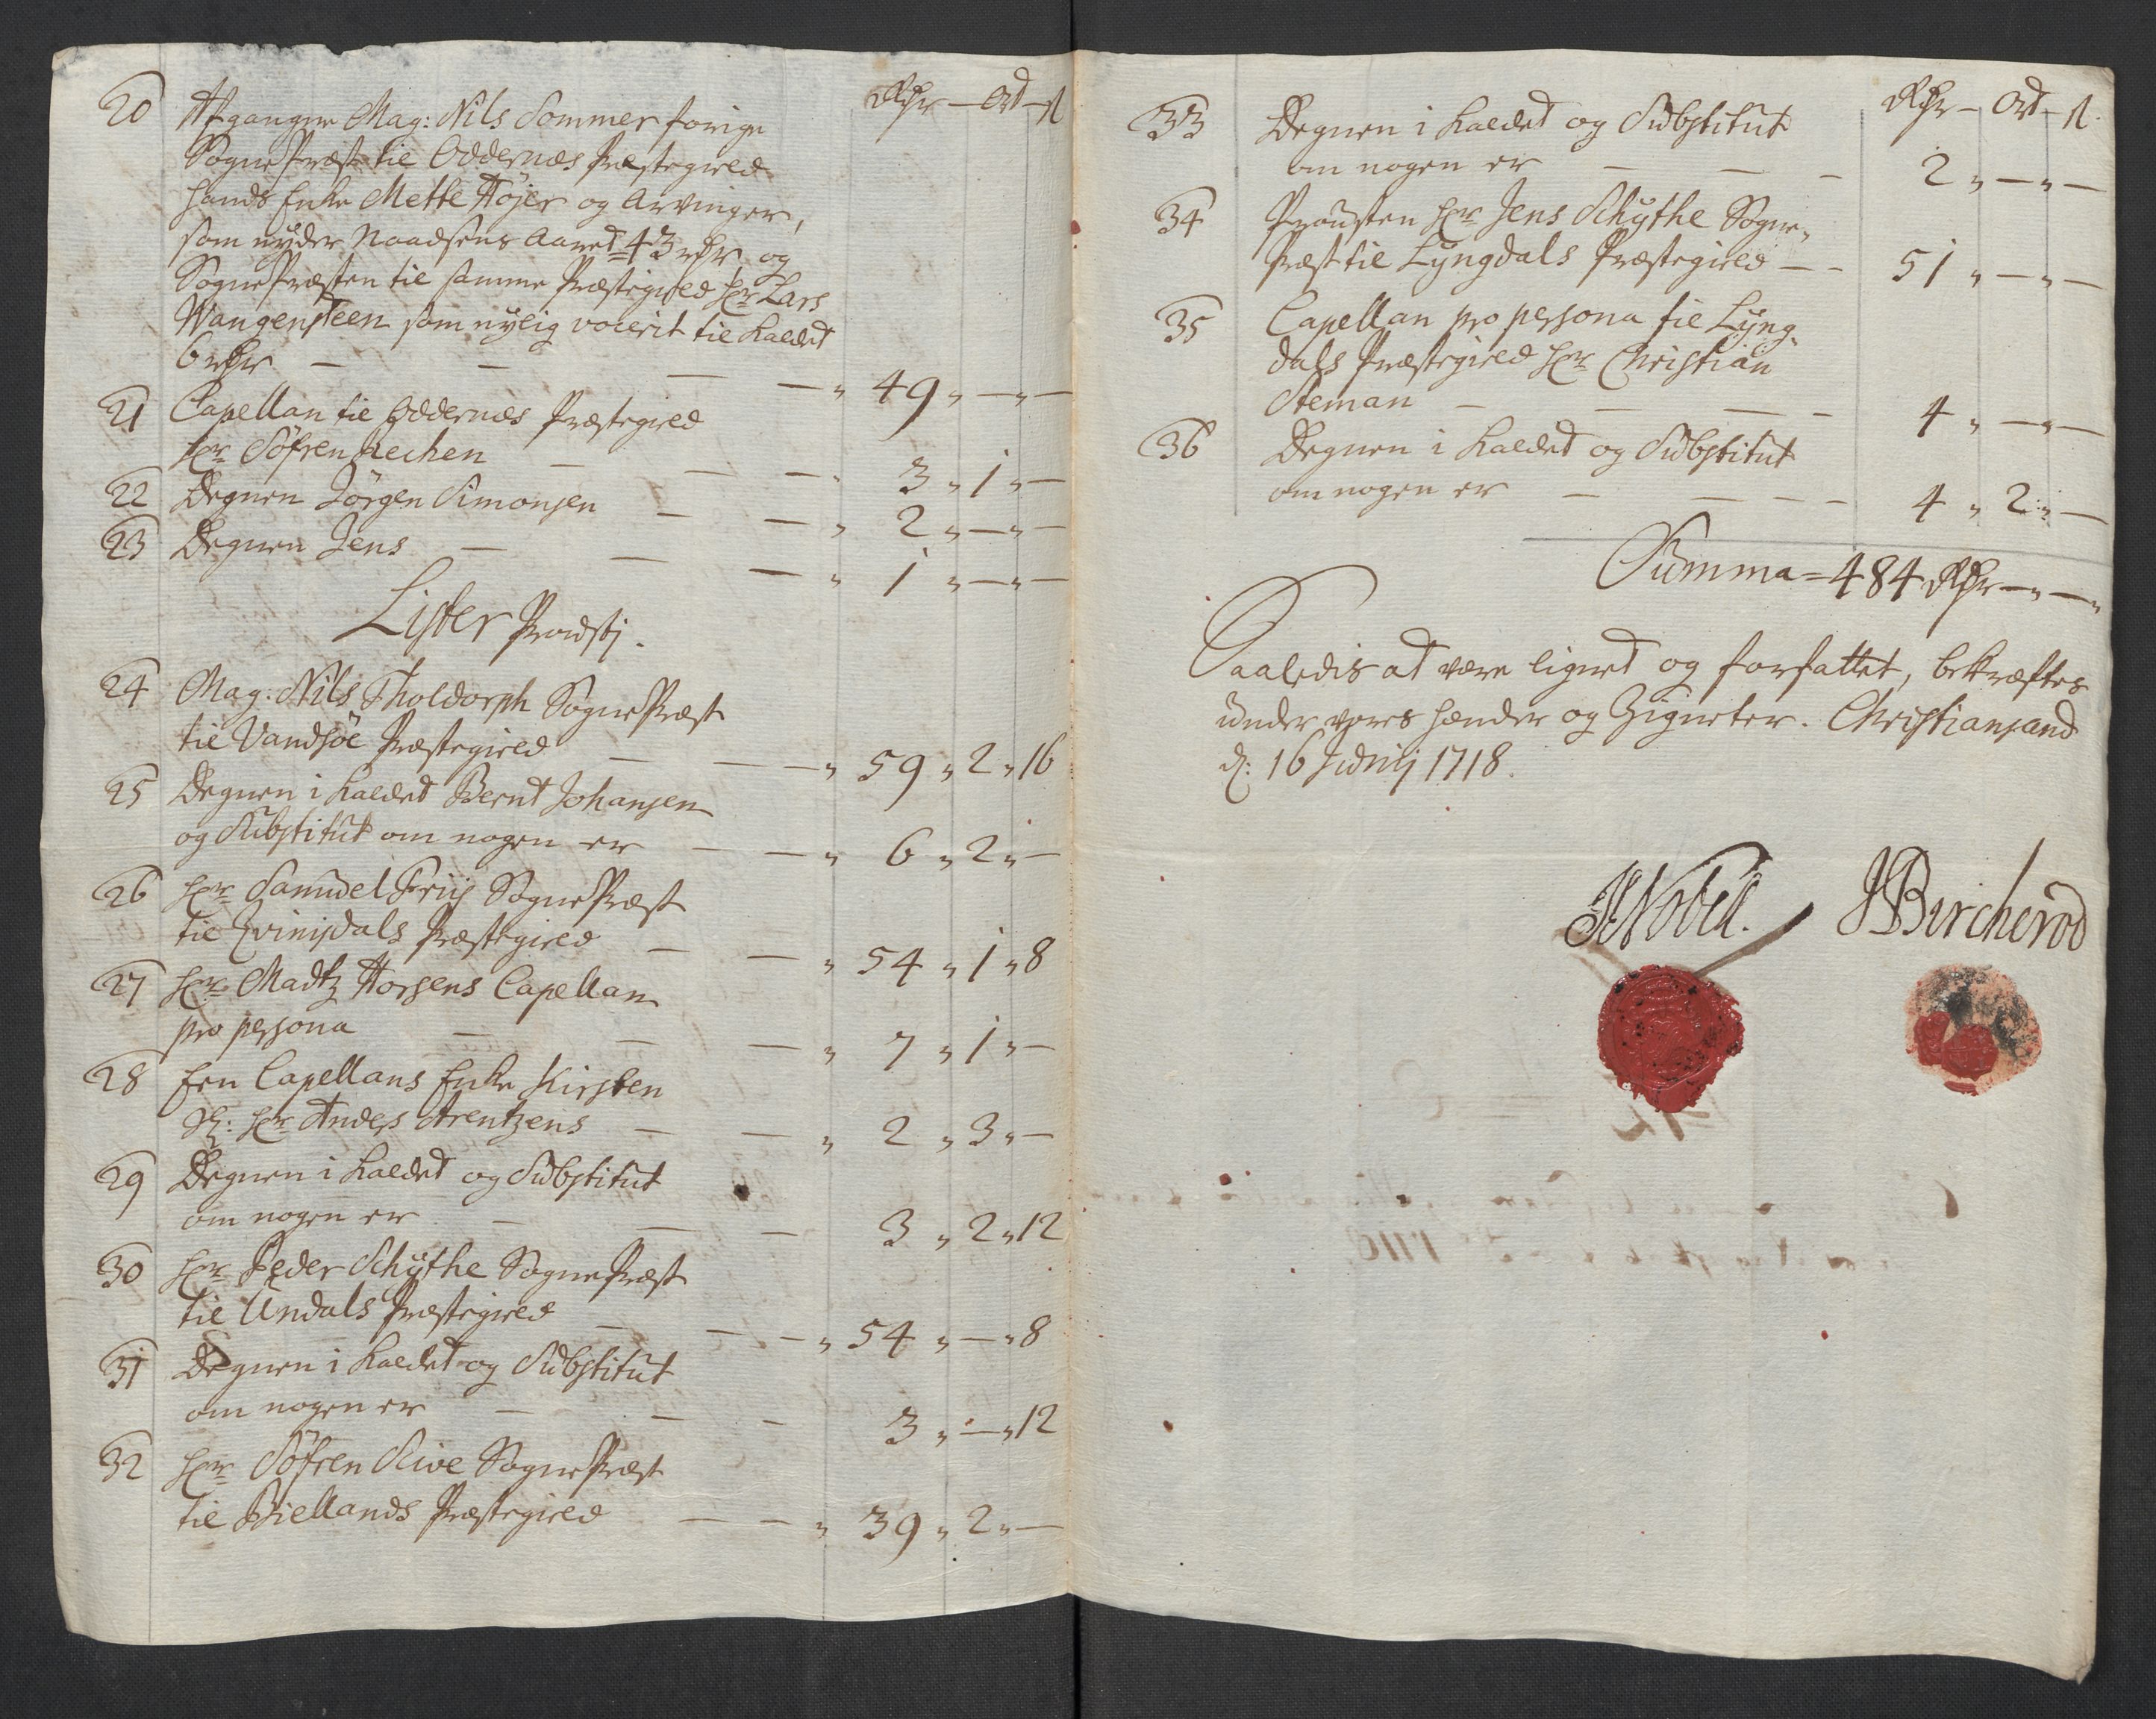 Rdr — Ort — ß
20 Afgangne Mag: Nils Sommer forige
Sogne Præst til Oddernæs Præstegield
hands Enke Mette Höjer og Arvinger,
som nyder Naadsens Aaret 43 rdr og
Sogne Præsten til samme Præstegield Hr Lars
Wangensteen som nylig vocerit til Kaldet
6 rdr — — — — „ 49 „ — „ —
21 Capellan til Oddernæs Præstegield
Hr Söfren — — — „ 3 „ 1 „ —
22 Degnen Jörgen Simonsen — — „ 2 „ — „ —
23 Degnen Jens — — — „ 1 „ — „ —
Lister Provstj.
24 Mag: Nils Tholdorph Sogne Præst
til Vandsöe Præstegield — — — „ 59 „ 2 „ 16
25 Degnen i Kaldet Bernt Johansen
og Substitut om nogen er — — „ 6 „ 2 „ —
26 Hr Samuel Friis Sogne Præst
til Qvinisdals Præstegield — — „ 54 „ 1 „ 8
27 Hr Madtz Horsens Capellan
pro persona — — — „ 7 „ 1 „ —
28 Een Capellans Enke Kirsten
Sl: Hr Anders Arentzens — — „ 2 „ 3 „ —
29 Degnen i Kaldet og Substitut
om nogen er — — — 3 „ 2 „ 12
30 Hr Peder Schythe Sogne Præst
til Undals Præstegield — — — „ 54 „ — „ 8
31 Degnen i Kaldet og Substitut
om nogen er — — — 3 „ — „ 12
32 Hr Söfren Scive Sogne Præst
til Biellands Præstegield — — „ 39 „ 2 „ —
Rdr — Ort — ß
33 Degnen i Kaldet og Substitut
om nogen er — — — 2 „ — „ —
34 Prousten Hr Jens Schythe Sogne
Præst til Lyngdals Præstegield — — 51 „ — „ —
35 Capellan pro persona til Lyng
dals Præstegield Hr Christian
Steman — — — — 4 „ — „ —
36 Degnen i Kaldet og Substitut
om nogen er — — — — 4 „ 2 „ —
Summa = 484 Rdr — „ — „
Saaledis at være lignet og forfattet, bekræftes
under vores hænder og Zigneter. Christiansand
d: 16 Junij 1718.
Nobel. JBircherod